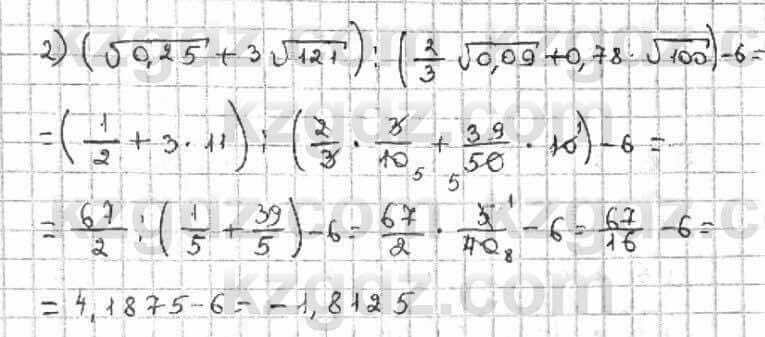 2) (√0,25 + 3 √121) : (2/3 √0,09 + 0,78 · √100) - 6 =
= (1/2 + 3 · 11) : (2/3 · 3/10 5 + 39/50 5 · 10 1) - 6 =
= 67/2 : (1/5 + 39/5) - 6 = 67/2 · 5 1/40 8 - 6 = 67/16 - 6 =
= 4,1875 - 6 = -1,8125
kzgdz.com